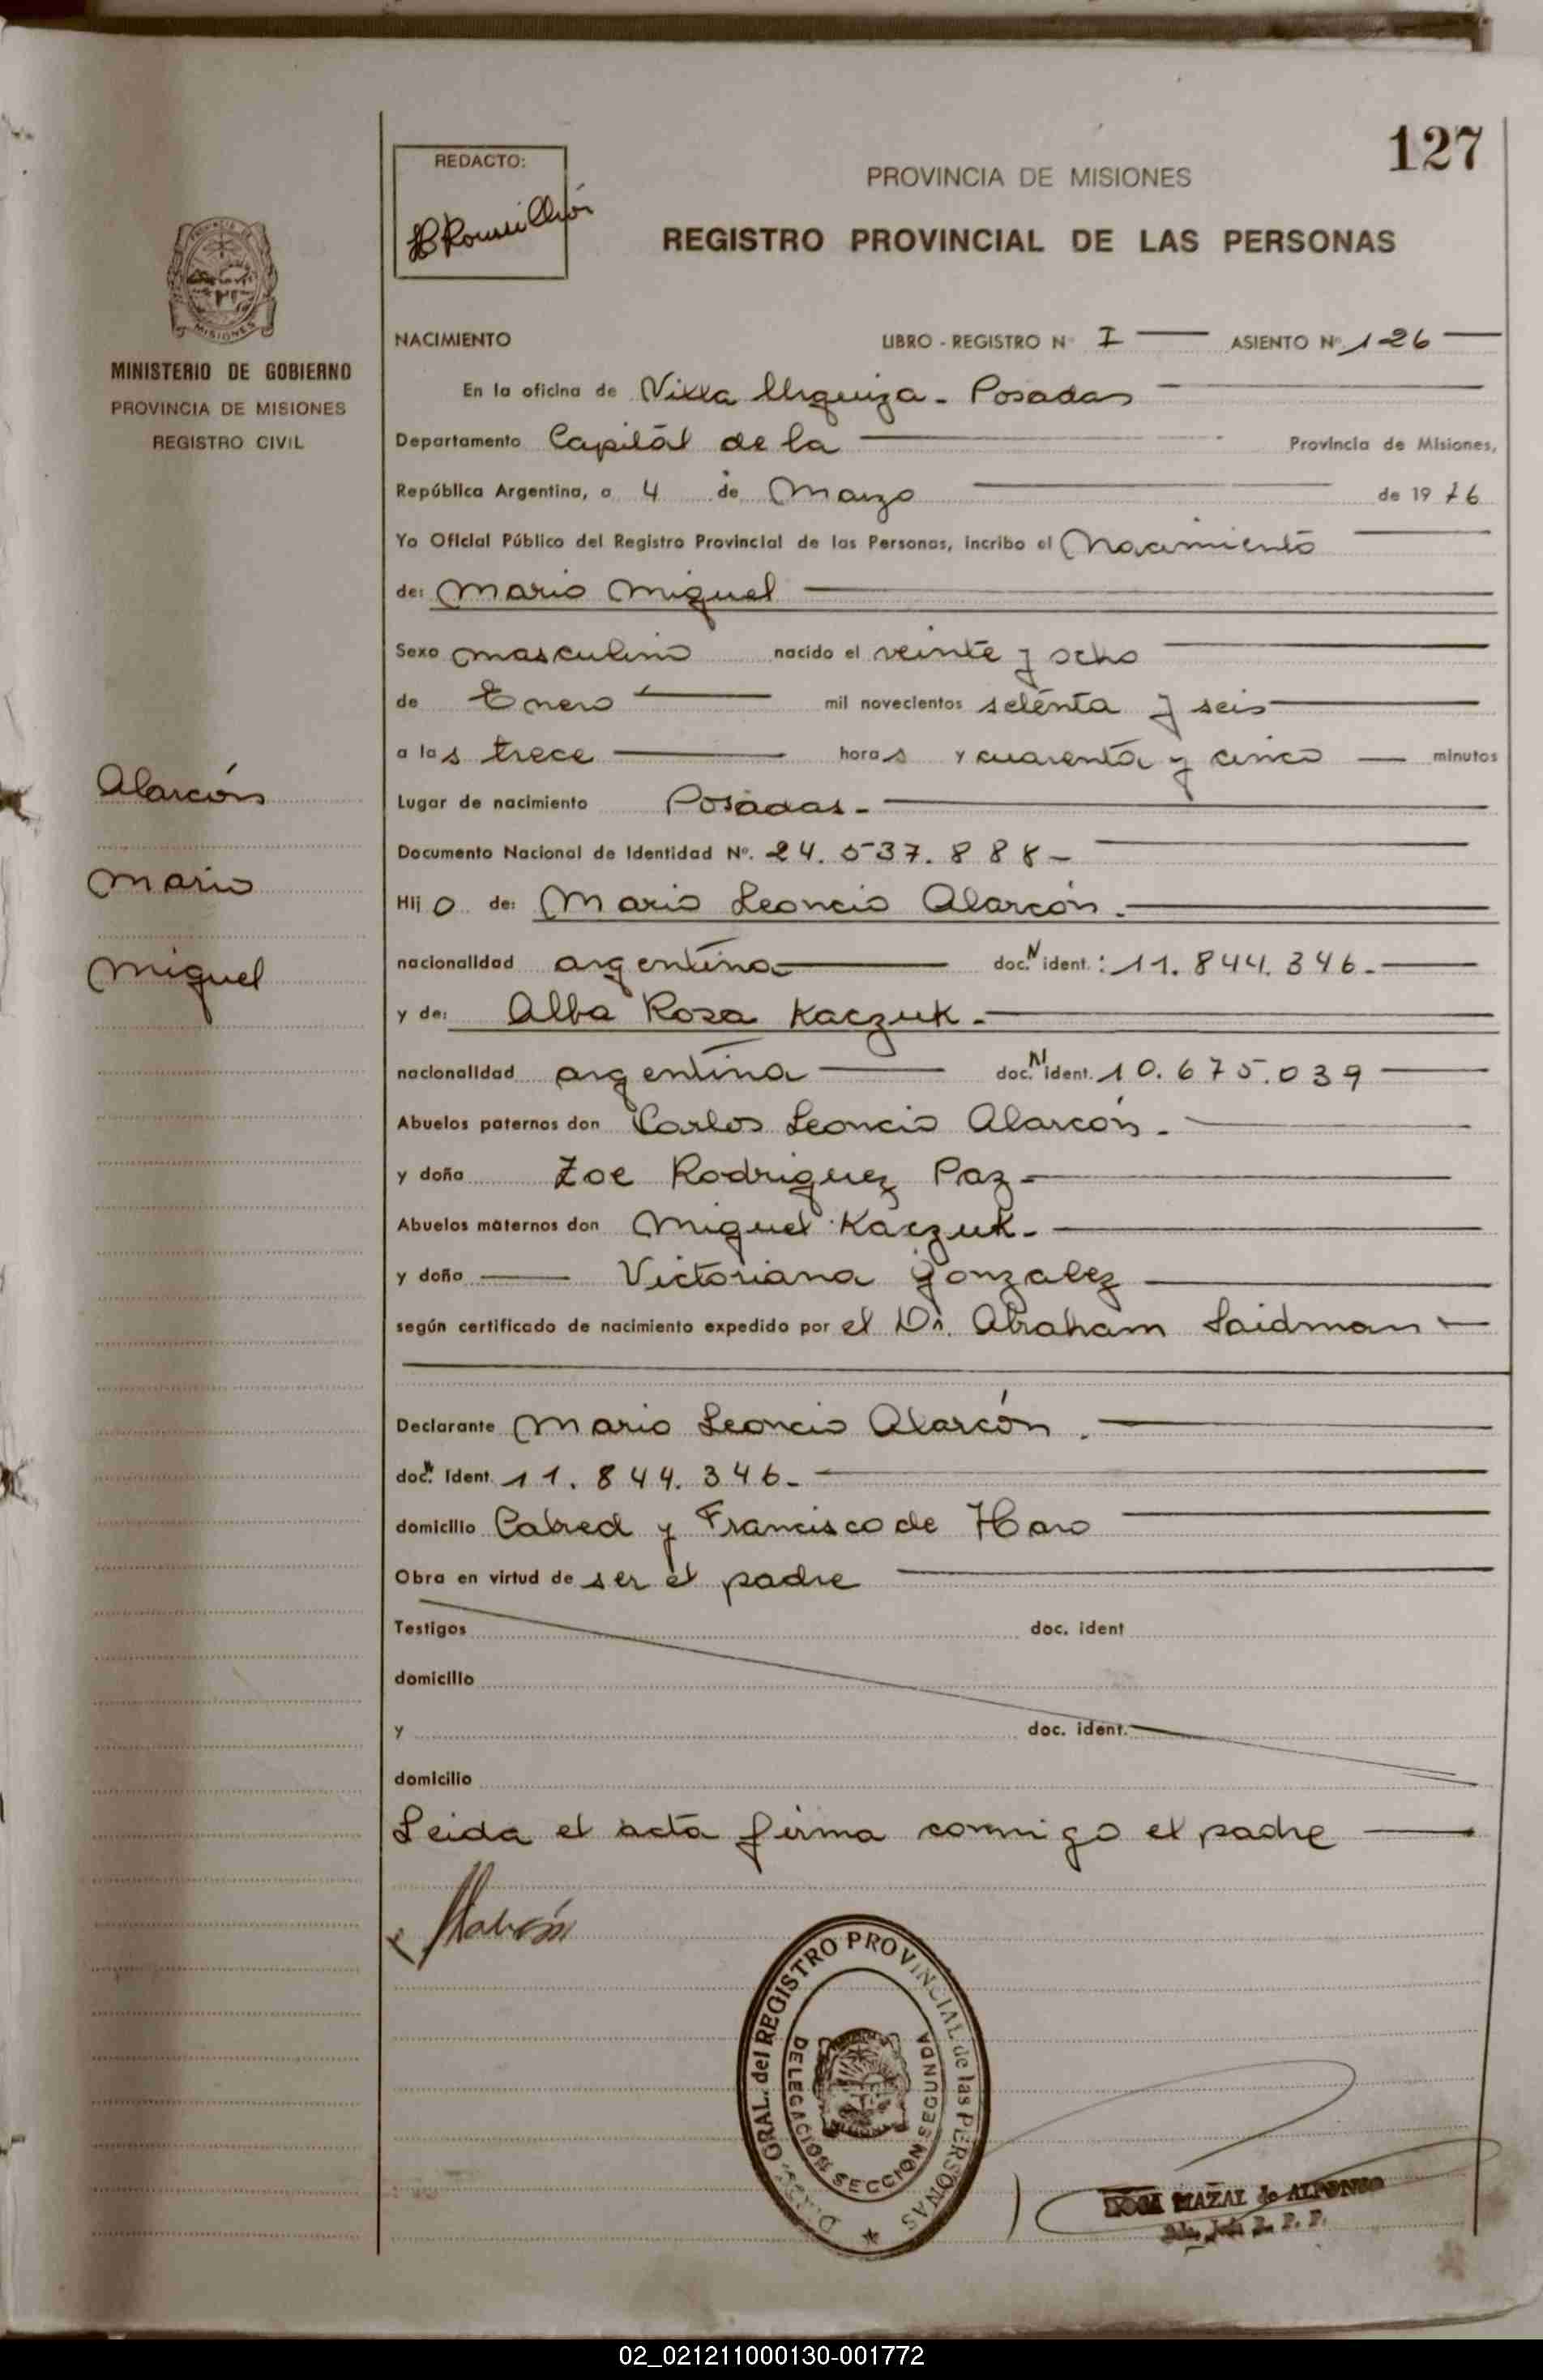 127
REDACTO:
PROVINCIA DE MISIONES
REGISTRO PROVINCIAL DE LAS PERSONAS
MISIONES
MINISTERIO DE GOBIERNO
PROVINCIA DE MISIONES
REGISTRO CIVIL
Alarcón
Mario
Miguel
NACIMIENTO LIBRO - REGISTRO Nº I ASIENTO Nº 126
En la oficina de Villa Urquiza - Posadas
Departamento Capital de la Provincia de Misiones,
República Argentina, a 4 de Marzo de 1976
Yo Oficial Público del Registro Provincial de las Personas, incribo el Nacimiento
de: Mario Miguel
Sexo masculino nacido el veinte y ocho
de Enero mil novecientos setenta y seis
a las trece horas y cuarenta y cinco minutos
Lugar de nacimiento Posadas -
Documento Nacional de Identidad Nº. 24.537.888 -
Hijo de: Mario Leoncio Alarcón. -
nacionalidad argentina doc. N ident.: 11.844.346. -
y de: Alba Rosa Kaczuk. -
nacionalidad argentina doc. N ident. 10.675.039
Abuelos paternos don Carlos Leoncio Alarcón. -
y doña Zoe Rodriguez Paz -
Abuelos maternos don Miguel Kaczuk. -
y doña Victoriana Gonzalez
según certificado de nacimiento expedido por el Dr. Abraham Saidman -
Declarante Mario Leoncio Alarcón. -
doc. N Ident. 11.844.346. -
domicilio Cabred y Francisco de Haro
Obra en virtud de ser el padre
Testigos doc. ident
domicilio
y doc. ident.
domicilio
Leida el acta firma conmigo el padre
Alarcón
GRAL. del REGISTRO PROVINCIAL de las PERSONAS
DELEGACION SECCION SEGUNDA
MAZAL de ALFONSO
02_021211000130-001772